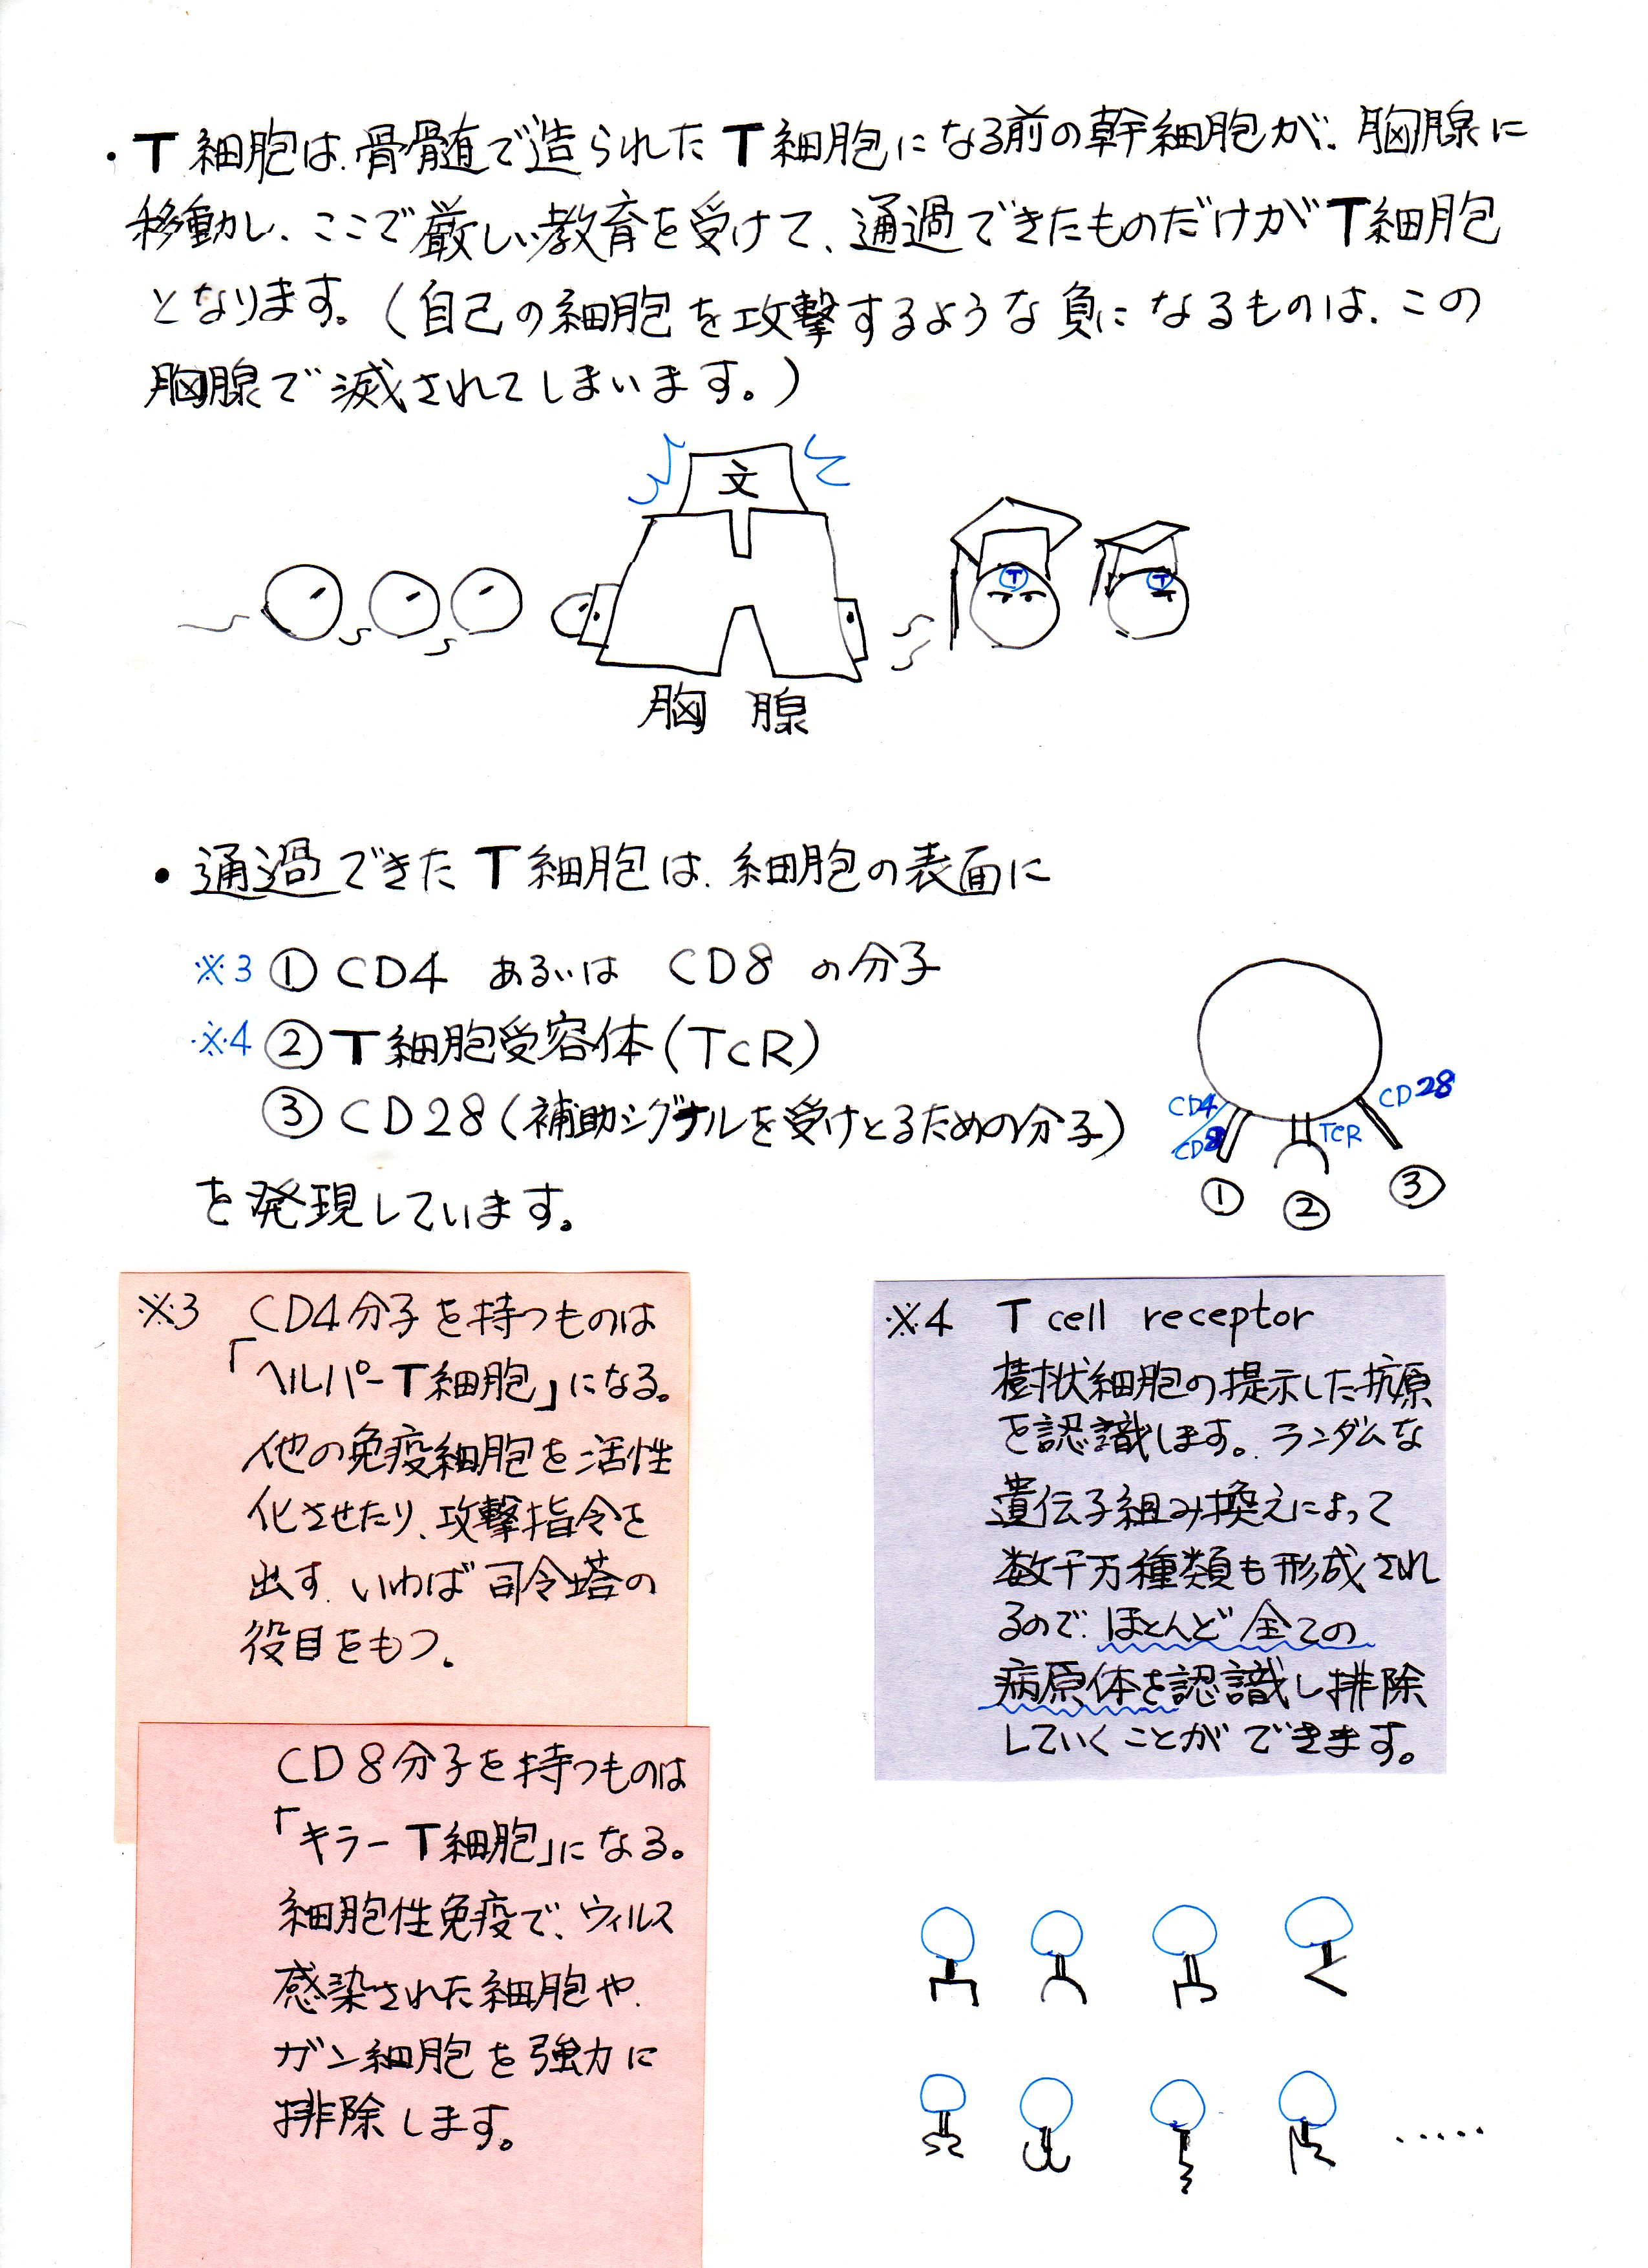 ・T細胞は、骨髄で造られたT細胞になる前の幹細胞が、胸腺に
移動し、ここで厳しい教育を受けて、通過できたものだけがT細胞
となります。(自己の細胞を攻撃するような負になるものは、この
胸腺で滅されてしまいます。)
文
T T
胸腺
・通過できたT細胞は、細胞の表面に
※3 ①CD4 あるいは CD8 の分子
※4 ②T細胞受容体(TcR)
③CD28(補助シグナルを受けとるための分子)
を発現しています。
CD4/CD8 TCR CD28
① ② ③
※3 CD4分子を持つものは
「ヘルパーT細胞」になる。
他の免疫細胞を活性
化させたり、攻撃指令を
出す、いわば司令塔の
役目をもつ。
CD8分子を持つものは
「キラーT細胞」になる。
細胞性免疫で、ウィルス
感染された細胞や、
ガン細胞を強力に
排除します。
※4 T cell receptor
樹状細胞の提示した抗原
を認識します。ランダムな
遺伝子組み換えによって
数千万種類も形成され
るので、ほとんど全ての
病原体を認識し排除
していくことができます。
.....